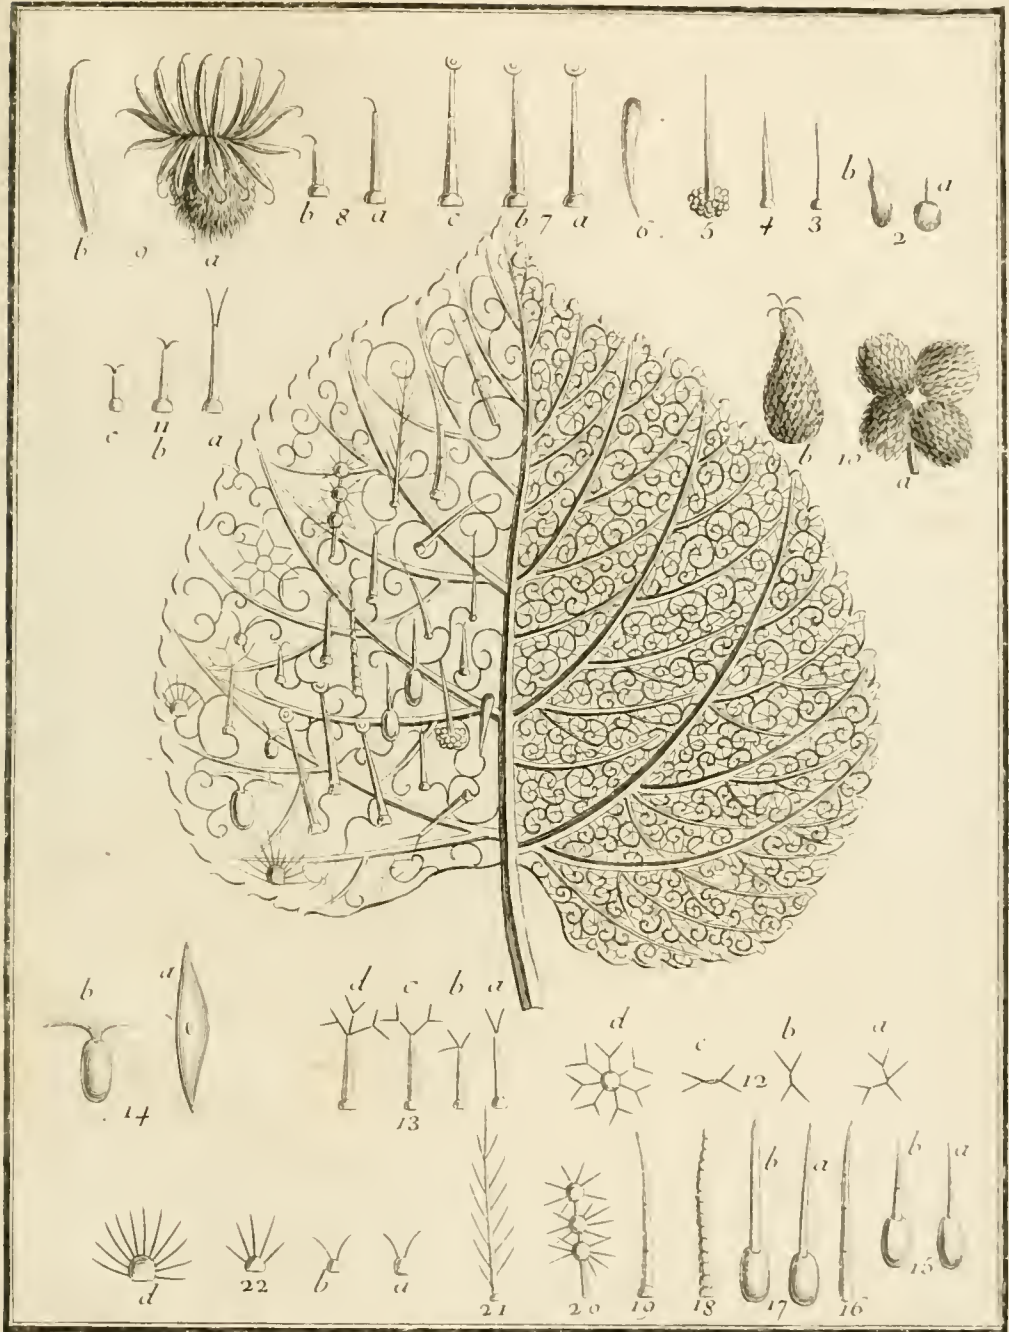 b 9 a b 8 a c b 7 a 6. 5 4 3 b 2 a
c 11 b a b 10 a
b 14 a d c b a 13 d c 12 b a
d 22 b a 21 20 19 18 b 17 a 16 b 15 a